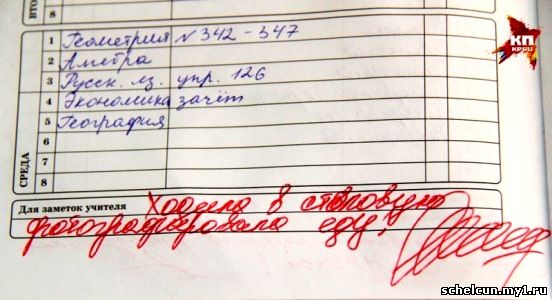 ВТО
8
КП
KP.RU
СРЕДА
1 Геометрия №342-347
2 Алгебра
3 Русск. яз. упр. 126
4 Экономика зачёт
5 География
6
7
8
Для заметок учителя Ходила в столовую
фотографировала еду!
schelcun.my1.ru